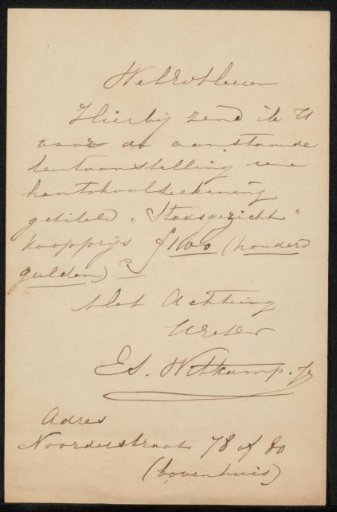 WelEdHeer
Hierbij zend ik U
voor de aanstaande
tentoonstelling eene
houtskoolteekening
getiteld „Stadsgezicht"
koopprijs ƒ100 (honderd
gulden)
Met Achting
UwEdDr
E.S. Witkamp. Jr
Adres
Noorderstraat 78 of 80
(bovenhuis)